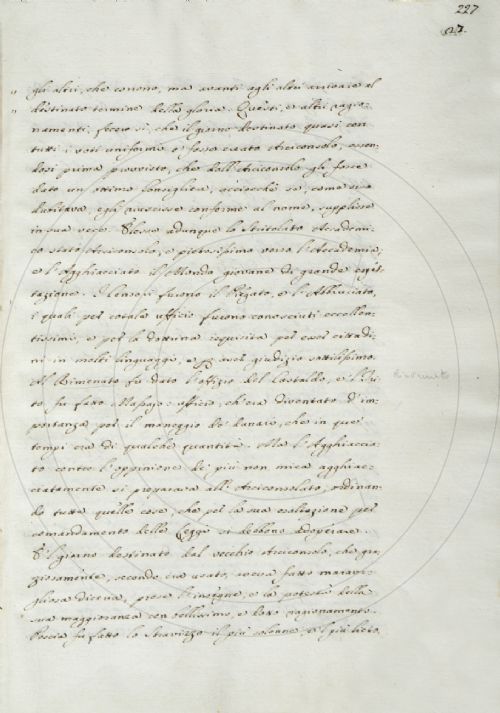 227
27.
„ gli altri, che corrono, ma avanti agli altri arrivare al
„ destinato termine della gloria. Questi, e altri ragio-
namenti, fecero sì, che il giorno destinato quasi con
tutti i voti uniformi e' fosse creato Arciconsolo, essen-
dosi prima provvisto, che dall'Arciconsolo gli fosse
dato un ottimo Consigliere, acciocchè se, come si
dubitava, egli riuscisse conforme al nome, supplisse
in sua vece. Fu adunque lo Stritolato Accademi-
co stato Arciconsolo, e pietosissimo verso l'Accademia,
e l'Agghiacciato il Mondo giovane di grande espet-
tazione. I Censori furono il Rifiorito, e l'Abbruciato,
i quali per cotale ufficio furono conosciuti eccellen-
tissimi, e per la dottrina requisita per esser cittadi-
ni in molti linguaggi, e per aver giudizio sottilissimo.
Al Rimenato fu dato l'offizio del Castaldo, e il
to fu fatto Massajo: ufficio, ch'era diventato d'im-
portanza per il maneggio de' danari, che in que'
tempi era di qualche quantità. Ma l'Agghiaccia-
to contro l'oppinione de' più non mica agghiac-
ciatamente si preparava all'Arciconsolato, ordinan-
do tutte quelle cose, che per la sua esaltazione per
comandamento delle Leggi si debbono adoperare.
E 'l giorno destinato dal vecchio Arciconsolo, che gra-
ziosamente, secondo era usato, aveva fatto maravi-
gliosa diceria, prese l'insegne, e la potestà della
sua maggioranza con bellissimo, e dotto ragionamento.
Poscia fu fatto lo Stravizzo il più solenne, e il più lieto,